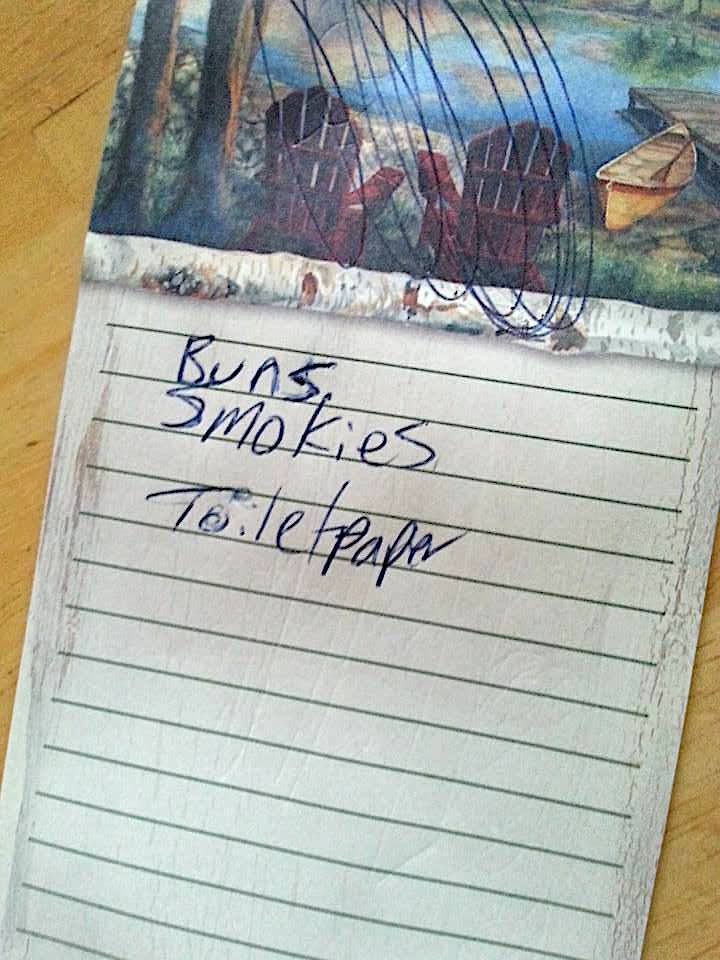 Buns,
Smokies
Toiletpaper